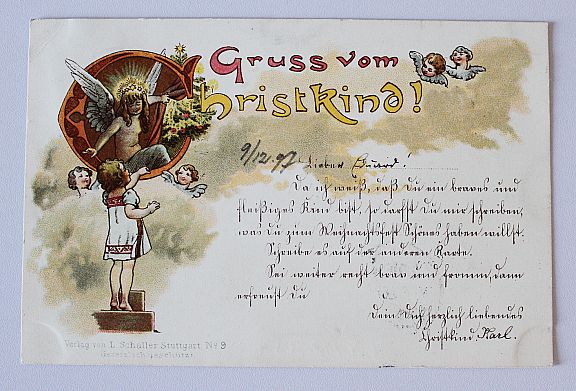 Gruss vom
Christkind!
9/12.97 Lieber Eduard!
Da ich weiß, daß Du ein braves und
fleißiges Kind bist, so darfst Du mir schreiben,
was Du zum Weihnachtsfest Schönes haben willst.
Schreibe es auf der anderen Karte.
Sei weiter recht brav und fromm, dann
erfreust Du
Dein Dich herzlich liebendes
Christkind, Karl.
Verlag von L. Schaller Stuttgart. No 9
Gesetzlich geschützt.